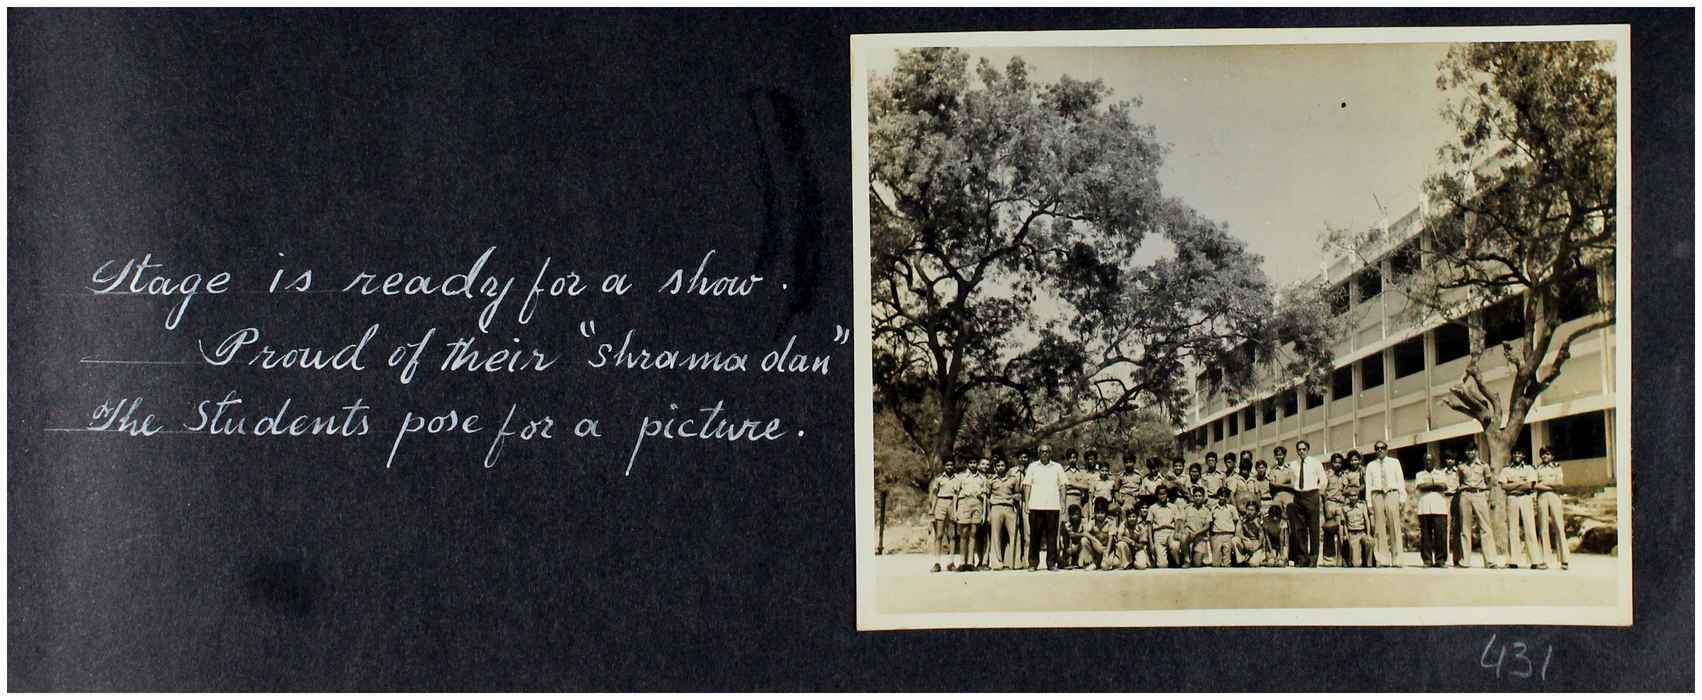 Stage is ready for a show.
Proud of their "shrama dan"
The Students pose for a picture.
431